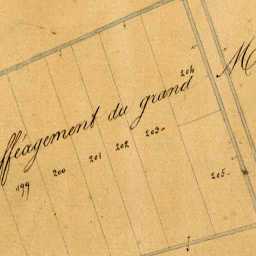 afféagement du grand M
204
203
202
201
200
199
205